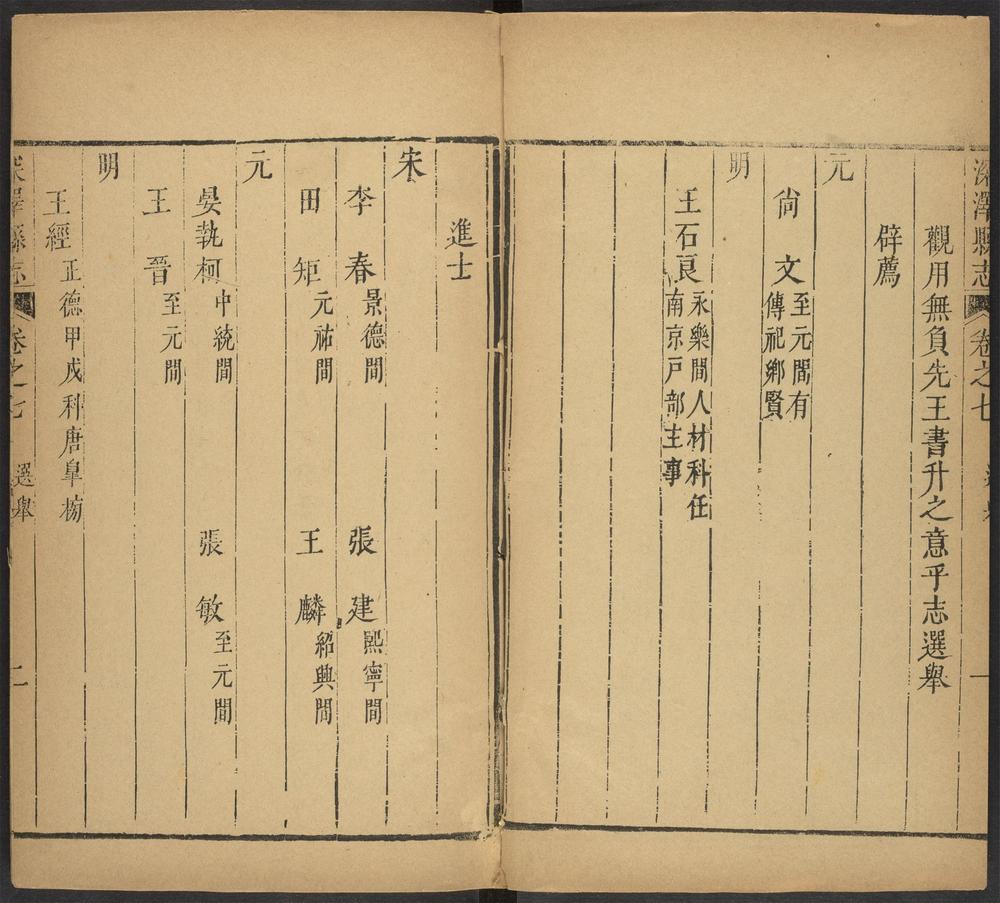 深澤縣志 卷之七 一
觀用無負先王書升之意乎志選舉
辟薦
元
尙文 至元間有
傳祀鄉賢
明
王石良 永樂間人材科任
南京戸部主事
進士
宋
李春 景德間 張建 熙寧間
田矩 元祐間 王麟 紹興間
元
晏執柯 中統間 張敏 至元間
王晉 至元間
明
王經 正德甲戌科唐皐榜
深澤縣志 卷之七 選舉 二